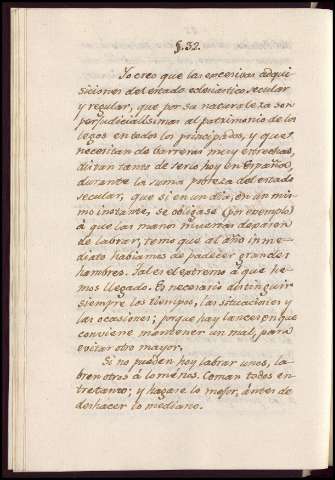 §. 32.
Yo creo que las excesivas adqui-
siciones del estado eclesiastico secular
y regular, que por su naturaleza son
perjudicialísimas al patrimonio de los
legos en todos los principados, y que
necesitan de barreras muy estrechas,
distan tanto de serlo hoy en España,
durante la suma pobreza del estado
secular, que si en un dia, en un mis-
mo instante, se obligase (por exemplo)
á que las manos muertas dejasen
de labrar, temo que al año inme-
diato habiamos de padecer grandes
hambres. Tal es el extremo á que he-
mos llegado. Es necesario distinguir
siempre los tiempos, las situaciones y
las ocasiones; porque hay lances en que
conviene mantener un mal, para
evitar otro mayor.
Si no pueden hoy labrar unos, la-
bren otros á lo ménos. Coman todos en-
tretanto; y hagase lo mejor, ántes de
deshacer lo mediano.